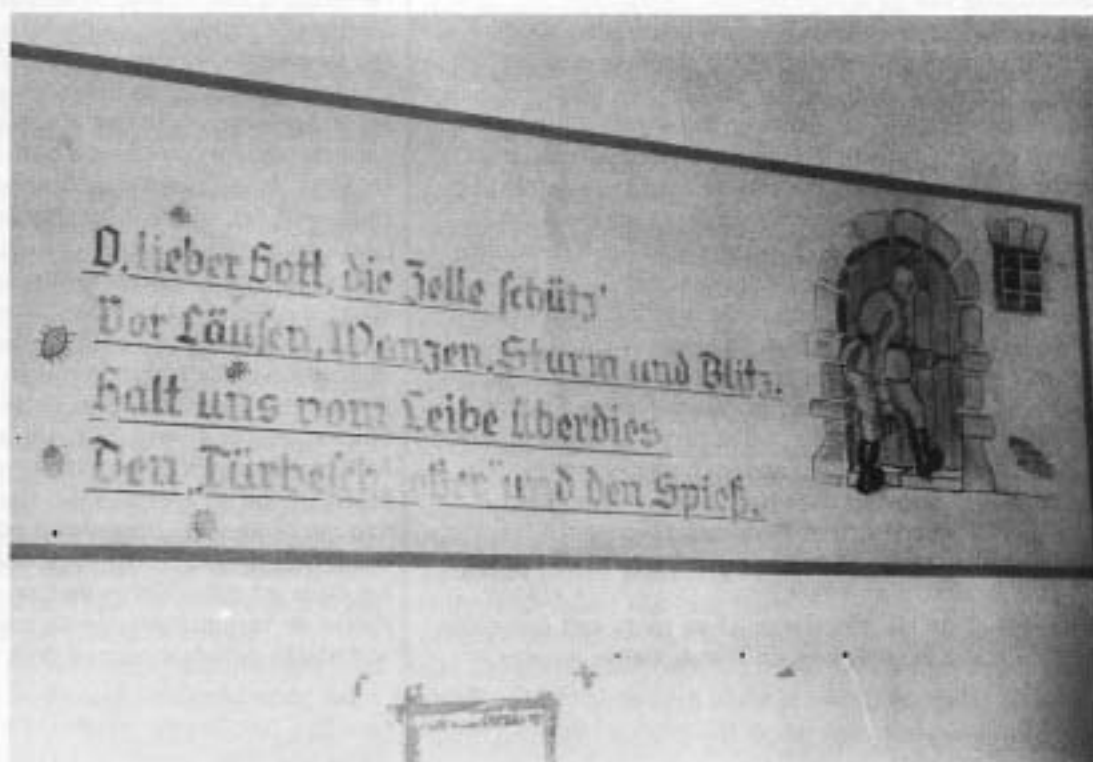 O, lieber Gott, die Zelle schütz'
Vor Läusen, Wanzen, Sturm und Blitz.
Halt uns vom Leibe überdies
Den und den Spieß.